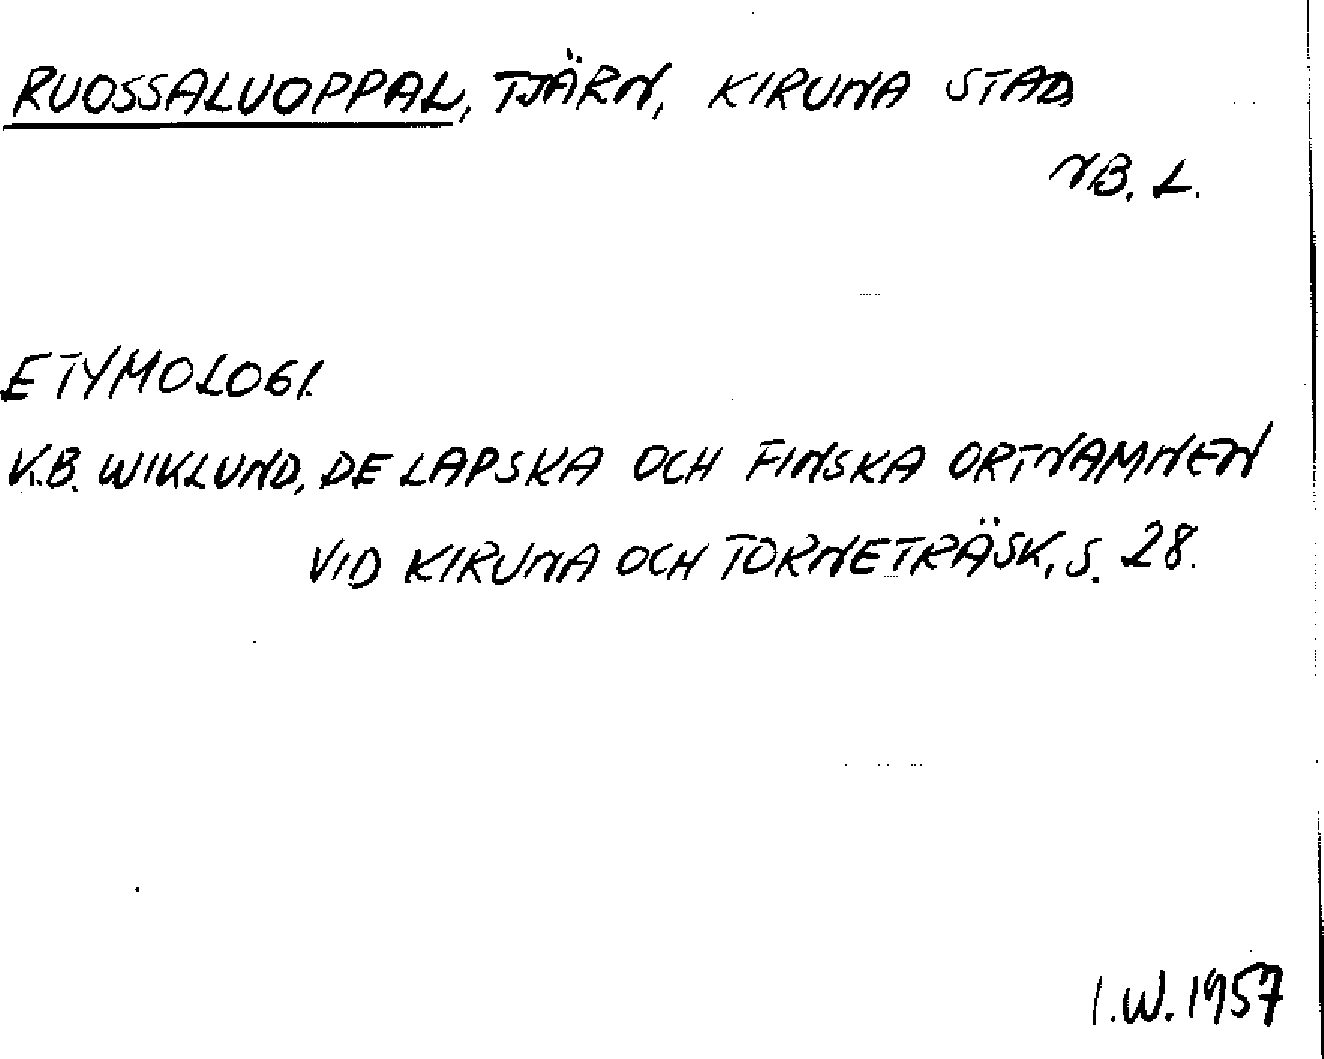 RUOSSALUOPPAL, TJÄRN, KIRUNA STAD
NB. L.
ETYMOLOGI.
K.B. WIKLUND, DE LAPSKA OCH FINSKA ORTNAMNEN
VID KIRUNA OCH TORNETRÄSK, S. 28.
I.W. 1957